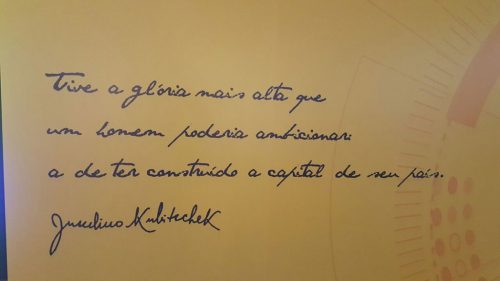 Tive a glória mais alta que
um homem poderia ambicionar:
a de ter construído a capital de seu país.
Juscelino Kubitschek